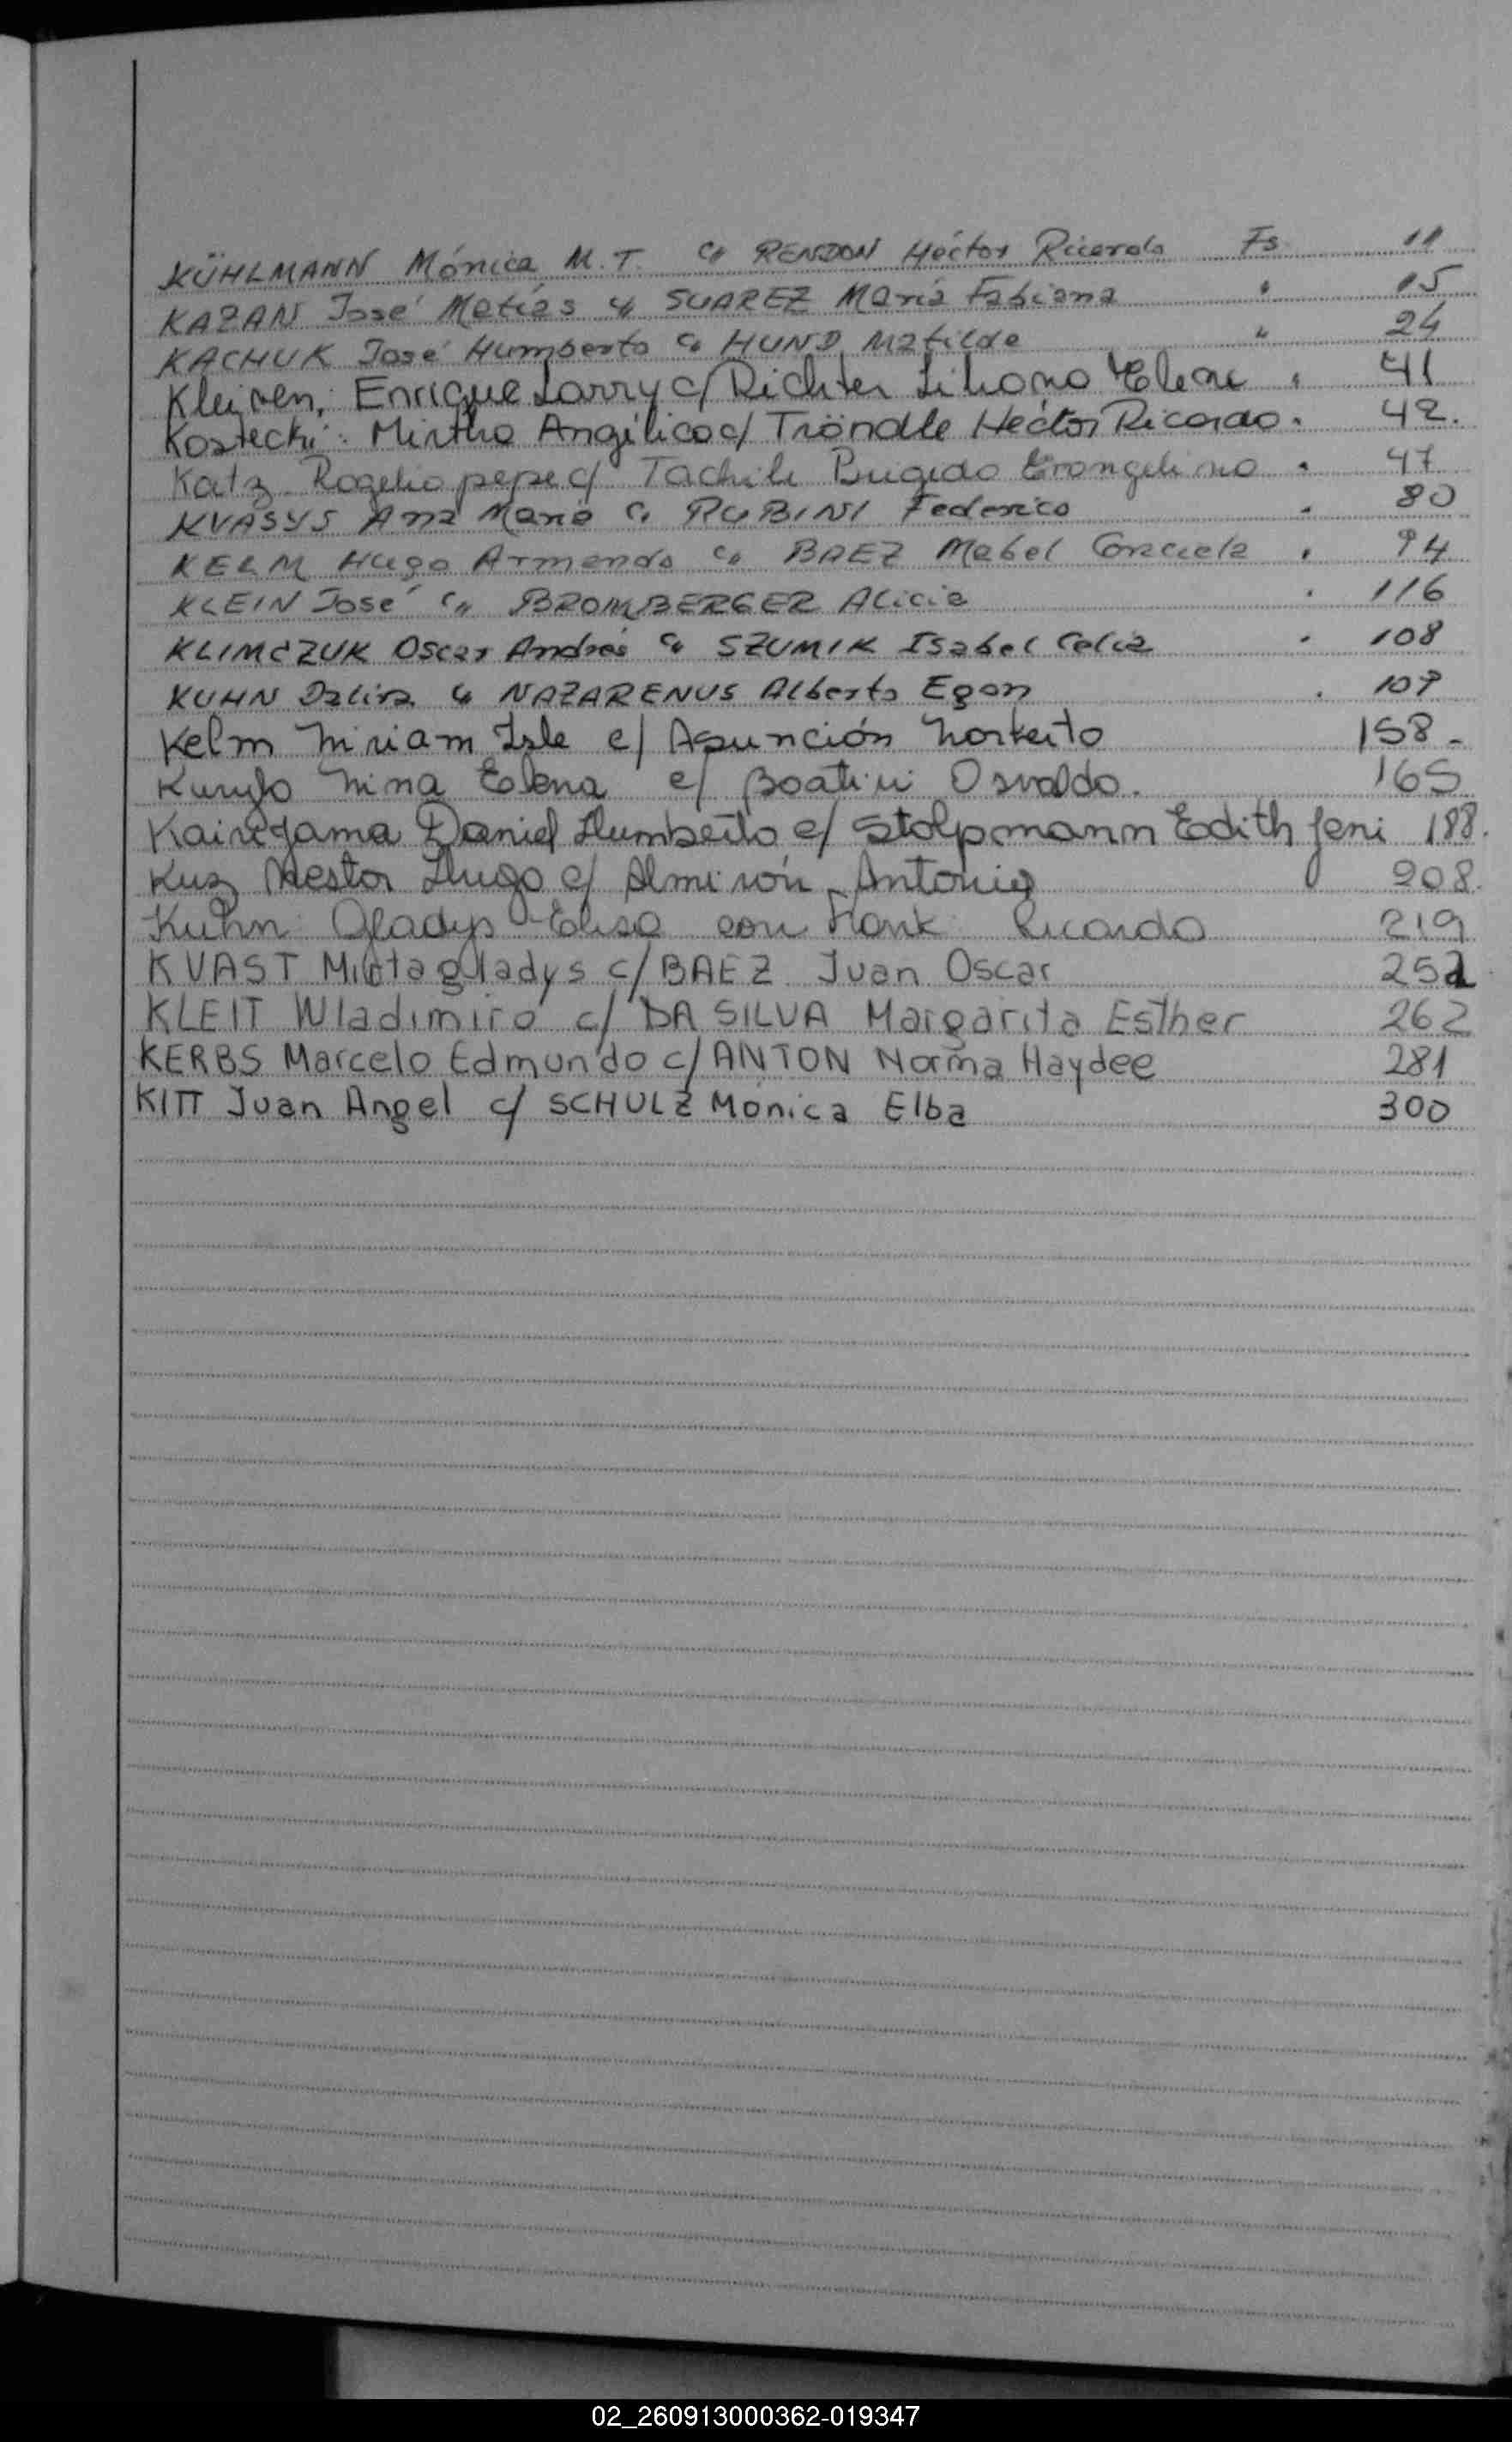 KÜHLMANN Mónica M.T. c/ RENDON Héctor Ricardo Fs. 11
KAZAN José Matías c/ SUAREZ María Fabiana " 15
KACHUK José Humberto c/ HUND Matilde " 24
Kleiven, Enrique Larry c/ Richter Liliana 41
Kostecki: Mirtha Angélica c/ Tröndle Héctor Ricardo. 42.
Katz Rogelio pepe c/ Brigido 47
KVASYS Ana María c/ RUBINI Federico 80
KELM Hugo Armando c/ BAEZ Mabel Graciela 94
KLEIN José c/ BROMBERGER Alicia 116
KLIMCZUK Oscar Andrés c/ SZUMIK Isabel Celia 108
KUHN c/ NAZARENUS Alberto Egon 109
Kelm Miriam c/ Asunción Norberto 158.
Nina Elena c/ Osvaldo. 165
Daniel Humberto c/ Stolpmann Edith Jeni 188.
Kuz Nestor Hugo c/ Almirón, 208.
Kuhn Gladys Elisa con Ricardo 219
KVAST Mirta gladys c/ BAEZ Juan Oscar 252
KLEIT Wladimiro c/ DA SILVA Margarita Esther 262
KERBS Marcelo Edmundo c/ ANTON Norma Haydee 281
KITT Juan Angel c/ SCHULZ Mónica Elba 300
02_260913000362-019347